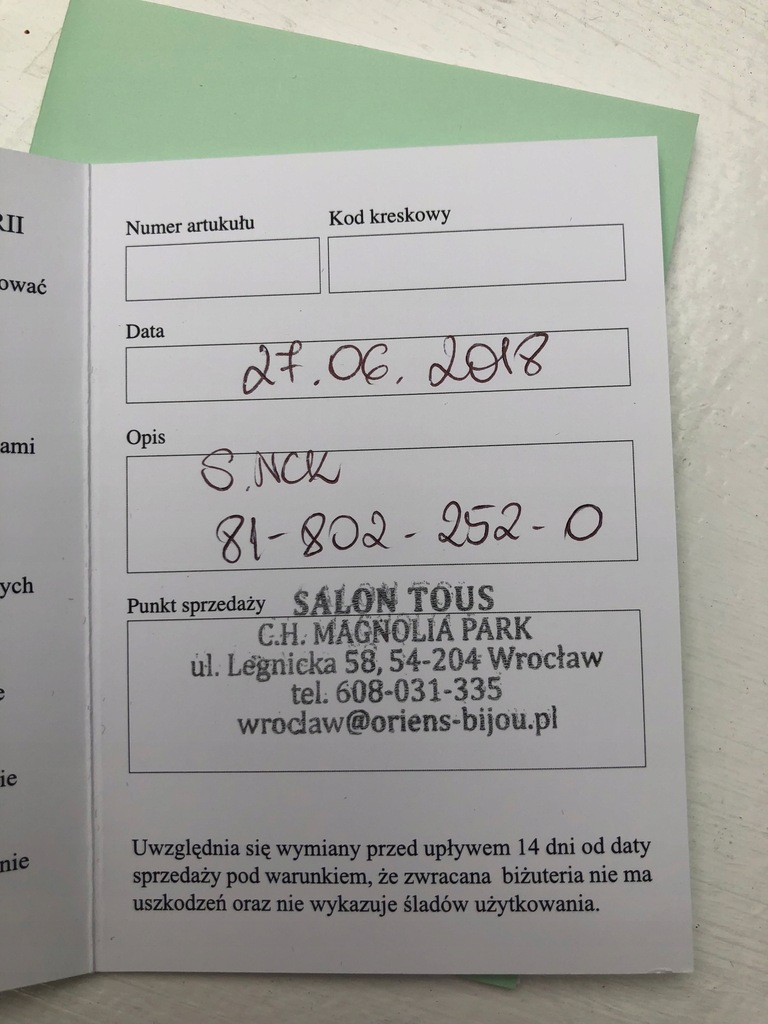 RII
ować
ami
ych
e
ie
nie
Numer artukułu
Kod kreskowy
Data
27.06.2018
Opis
S.NCK
81-802-252-0
Punkt sprzedaży
SALON TOUS
C.H. MAGNOLIA PARK
ul. Legnicka 58, 54-204 Wrocław
tel. 608-031-335
wroclaw@oriens-bijou.pl
Uwzględnia się wymiany przed upływem 14 dni od daty
sprzedaży pod warunkiem, że zwracana biżuteria nie ma
uszkodzeń oraz nie wykazuje śladów użytkowania.